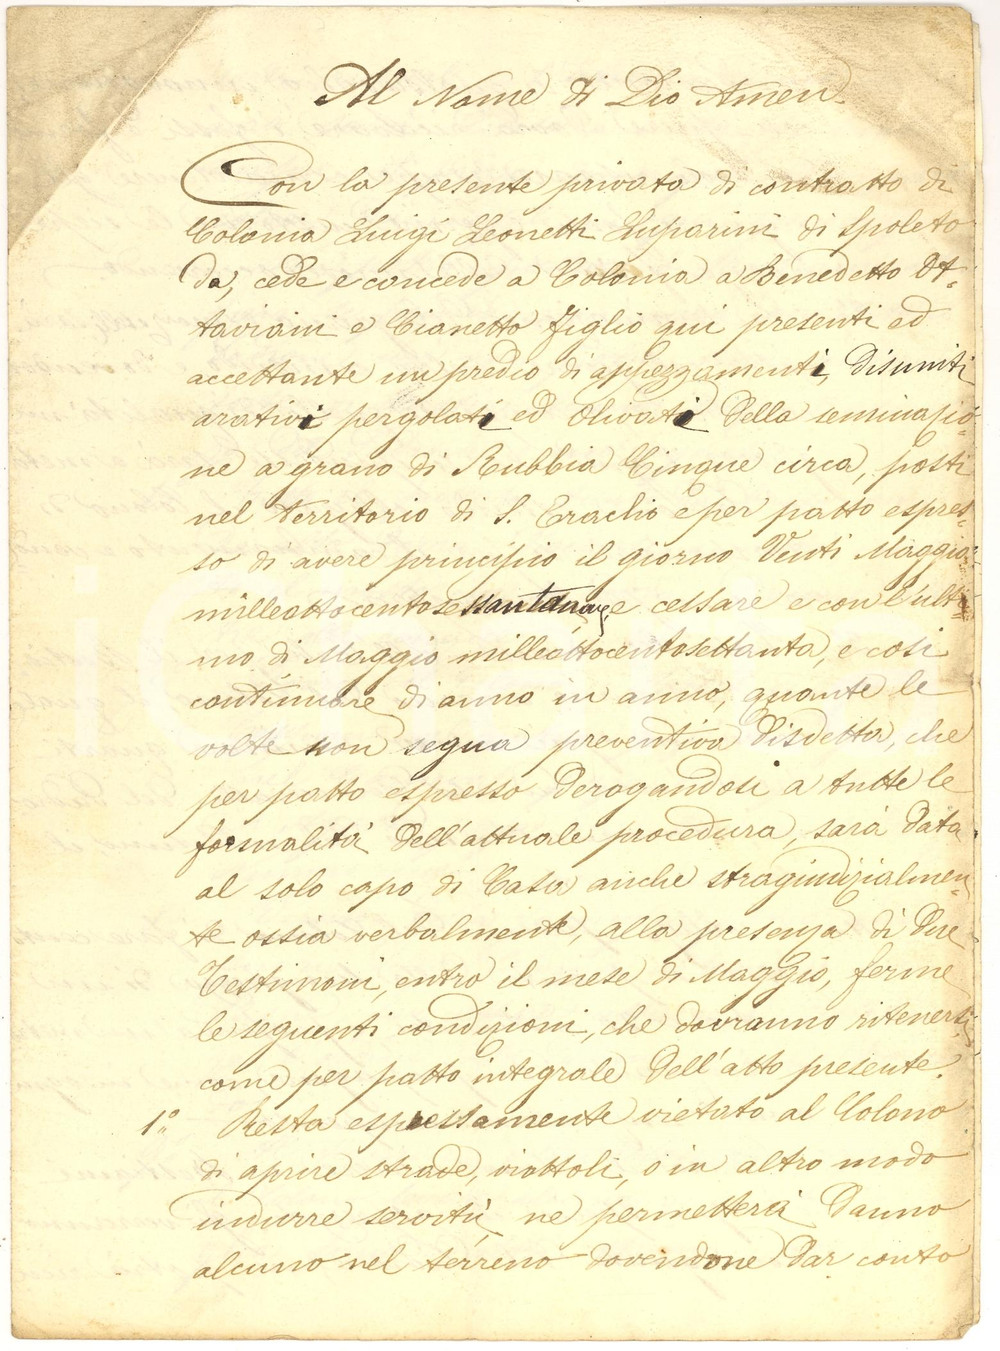 Al Nome di Dio Amen.
Con la presente privata di contratto di
Colonia Luigi Leonetti Luparini di Spoleto
da, cede e concede a Colonia a Benedetto Ot-
taviani e Cianetto figlio qui presenti ed
accettante un predio di appezzamenti, disuniti
arativi pergolati ed Olivati della seminazio-
ne a grano di Rubbia Cinque circa, posti
nel territorio di S. Eraclio e per patto espres-
so di avere principio il giorno Venti Maggio
milleottocentosessantanove e cessare e con l'ulti-
mo di Maggio milleottocentosettanta, e così
continuare di anno in anno, quante le
volte non segua preventiva disdetta, che
per patto espresso derogandosi a tutte le
formalità dell'attuale procedura, sarà data
al solo capo di Casa anche stragiudizialmen-
te ossia verbalmente, alla presenza di Due
Testimoni, entro il mese di Maggio, ferme
le seguenti condizioni, che dovranno ritenersi
come per patto integrale dell'atto presente.
1° Resta espressamente vietato al Colono
di aprire strade, viottoli, o in altro modo
indurre servitù ne permetterà danno
alcuno nel terreno dovendone dar conto